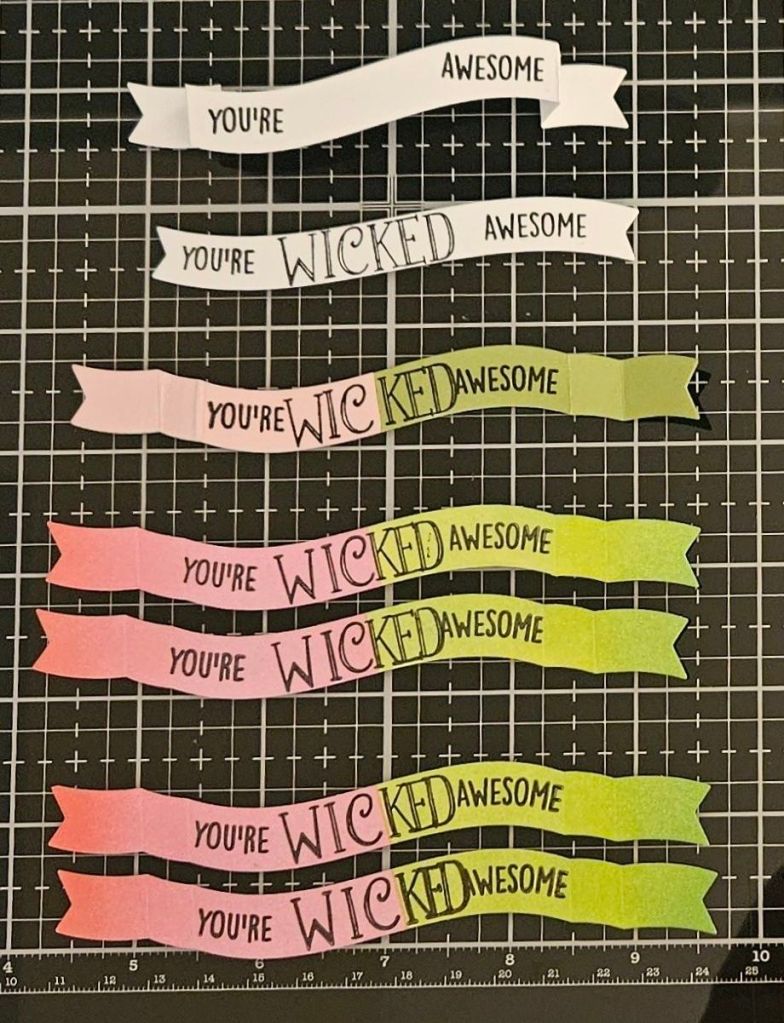 AWESOME
YOU'RE
YOU'RE WICKED AWESOME
YOU'RE WICKED AWESOME
YOU'RE WICKED AWESOME
YOU'RE WICKED AWESOME
YOU'RE WICKED AWESOME
YOU'RE WICKED AWESOME
4 5 6 7 8 9 10
10 11 12 13 14 15 16 17 18 19 20 21 22 23 24 25